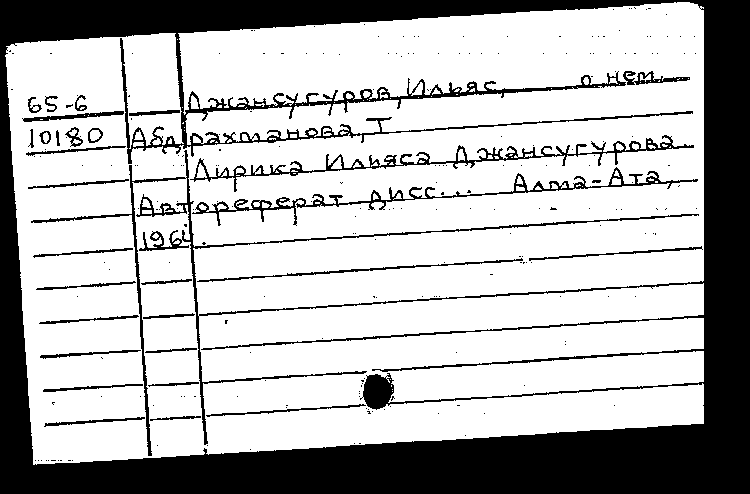 65-6 Джансугуров, Ильяс, о нем.
10180 Абдрахманова, Т
Лирика Ильяса Джансугурова.
Автореферат дисс... Алма-Ата,
1964.